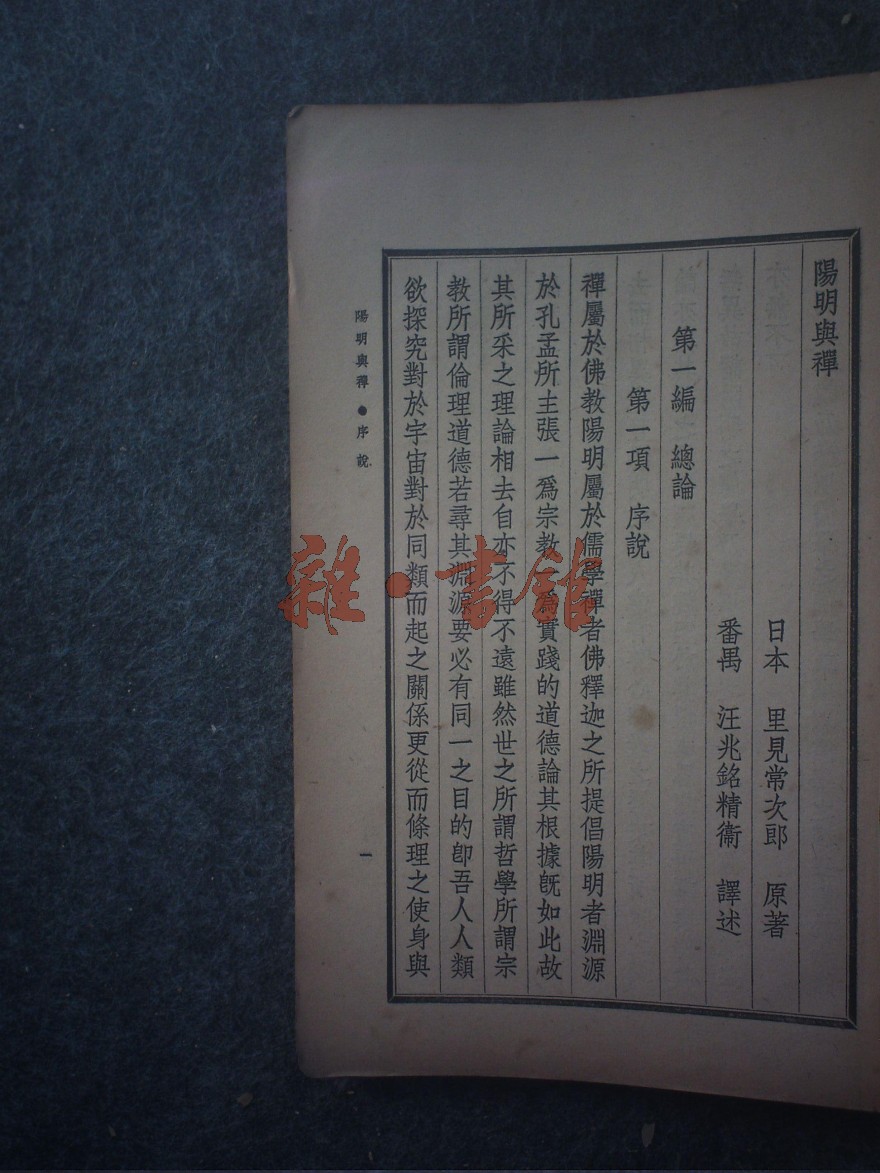 陽明與禪
日本 里見常次郎 原著
番禺 汪兆銘精衞 譯述
第一編 總論
第一項 序說
禪屬於佛教陽明屬於儒學禪者佛釋迦之所提倡陽明者淵源
於孔孟所主張一爲宗教一爲實踐的道德論其根據旣如此故
其所采之理論相去自亦不得不遠雖然世之所謂哲學所謂宗
教所謂倫理道德若尋其淵源要必有同一之目的卽吾人人類
欲探究對於宇宙對於同類而起之關係更從而條理之使身與
陽明與禪●序說
一
雜·書館